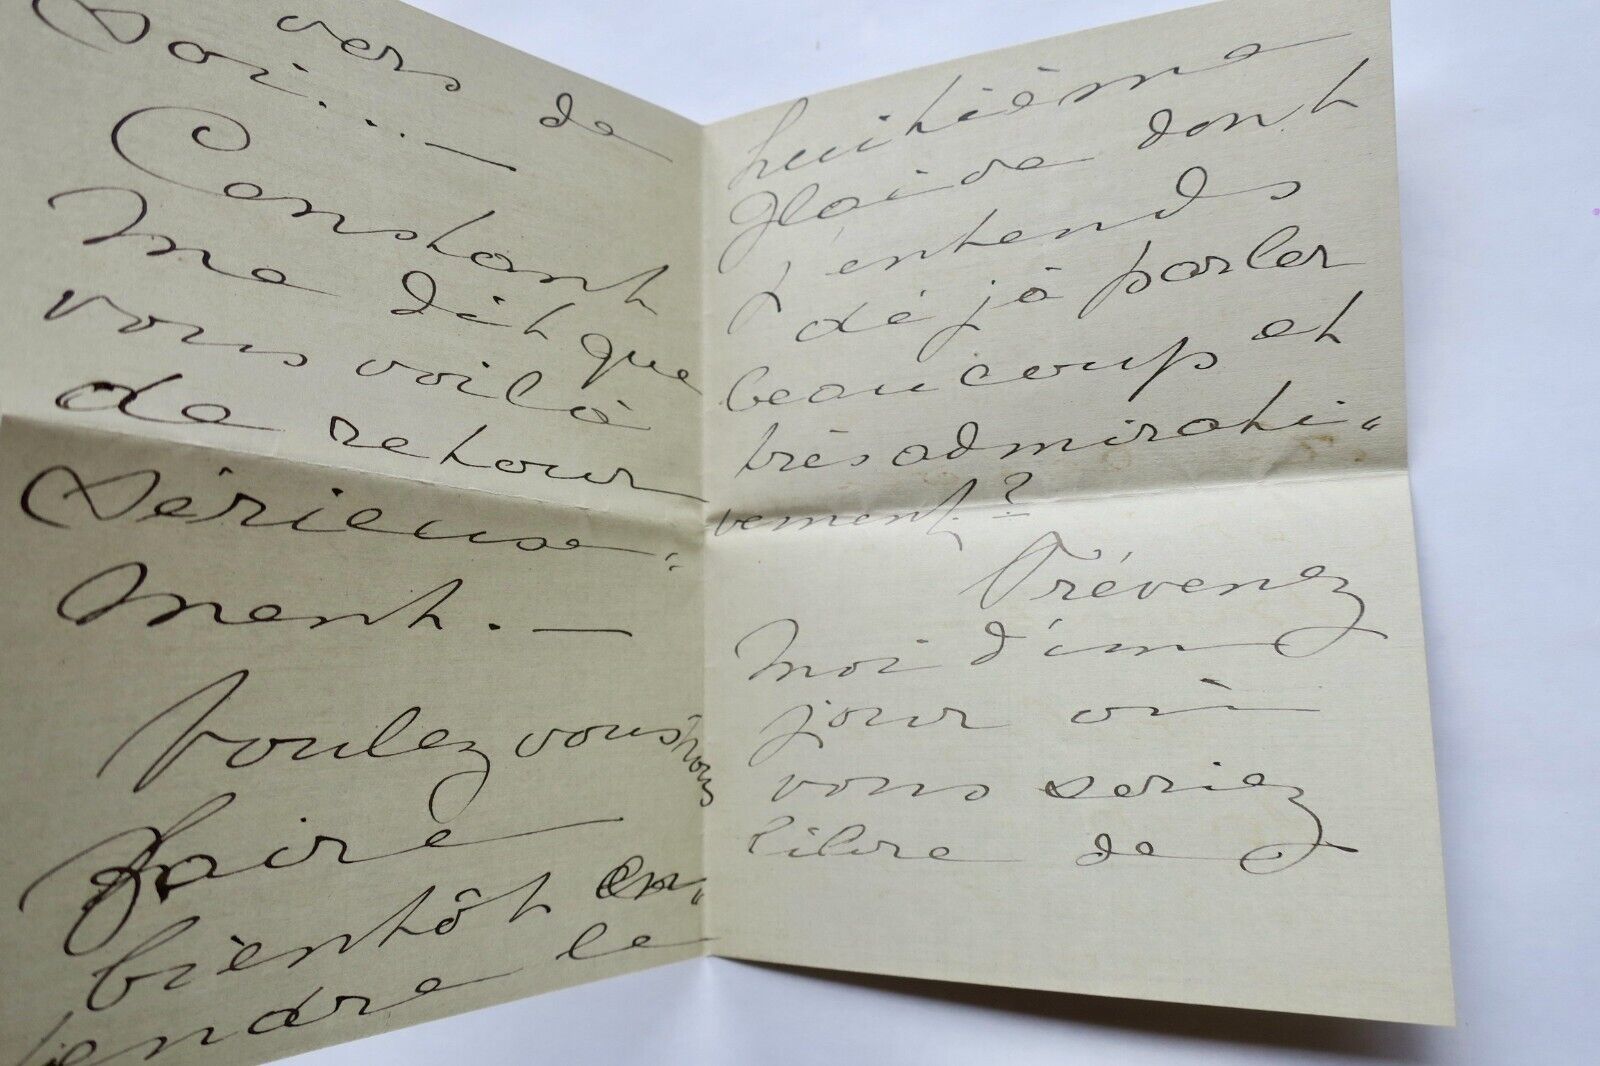 vers de
Soi...—
Constant
me dit que
vous voilà
de retour
Sérieuse„
ment.—
Voulez vous nous
faire
bientôt en„
tendre le
huitième
glaive dont
j'entends
déjà parler
beaucoup et
très admirati„
vement.?
Prévenez
moi d'un
jour où
vous seriez
libre de